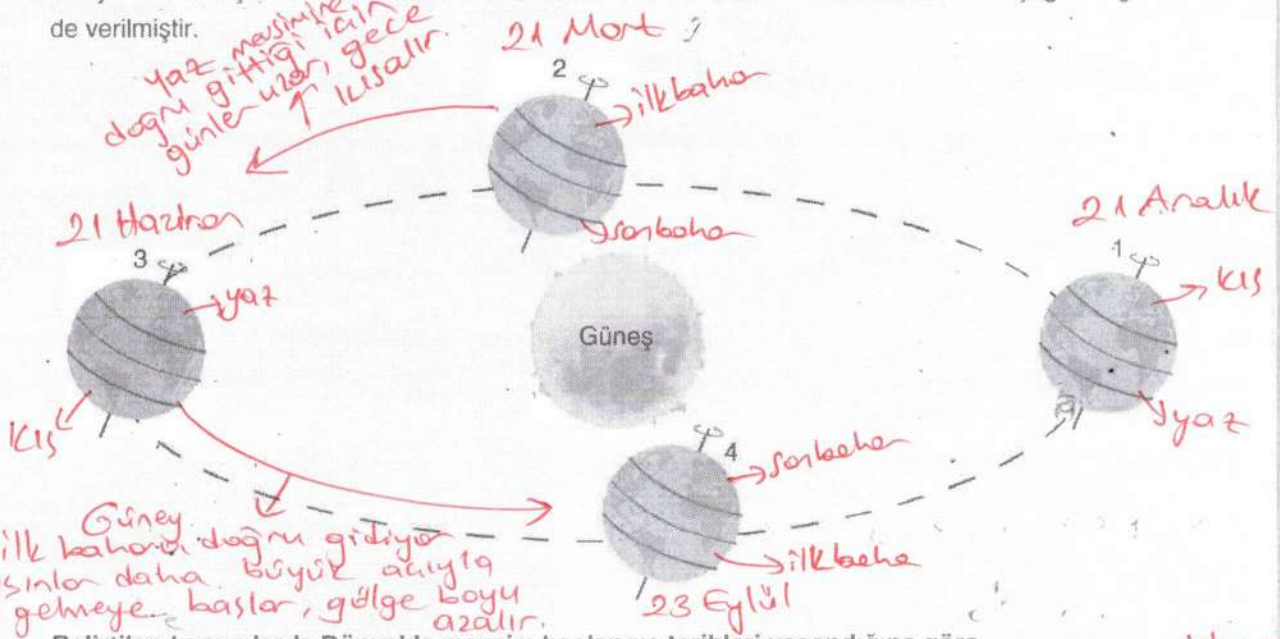 de verilmiştir.
yaz mevsimine
doğru gittiği için
günler uzar, gece
kısalır.
21 Mart
2
ilkbahar
sonbahar
21 Haziran
3
yaz
kış
Güneş
21 Aralık
1
kış
yaz
4
sonbahar
ilkbaha
23 Eylül
Güney
ilk bahara doğru gidiyor
ışınlar daha büyük açıyla
gelmeye başlar, gölge boyu
azalır.